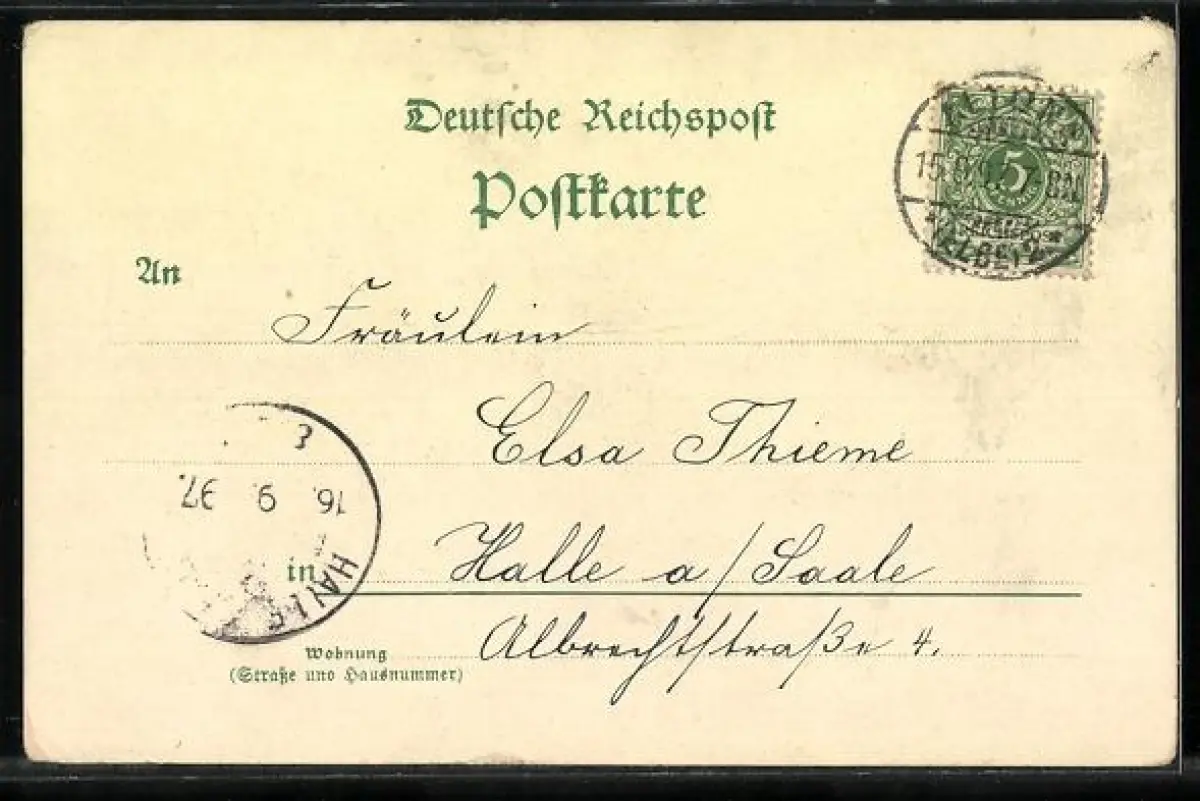 Deutsche Reichspost
Postkarte
5
An
Fräulein
Elsa Thieme
3
16. 9. 97.
HALLE
in Halle a/Saale
Albrechtstraße 4.
Wohnung
(Straße und Hausnummer)